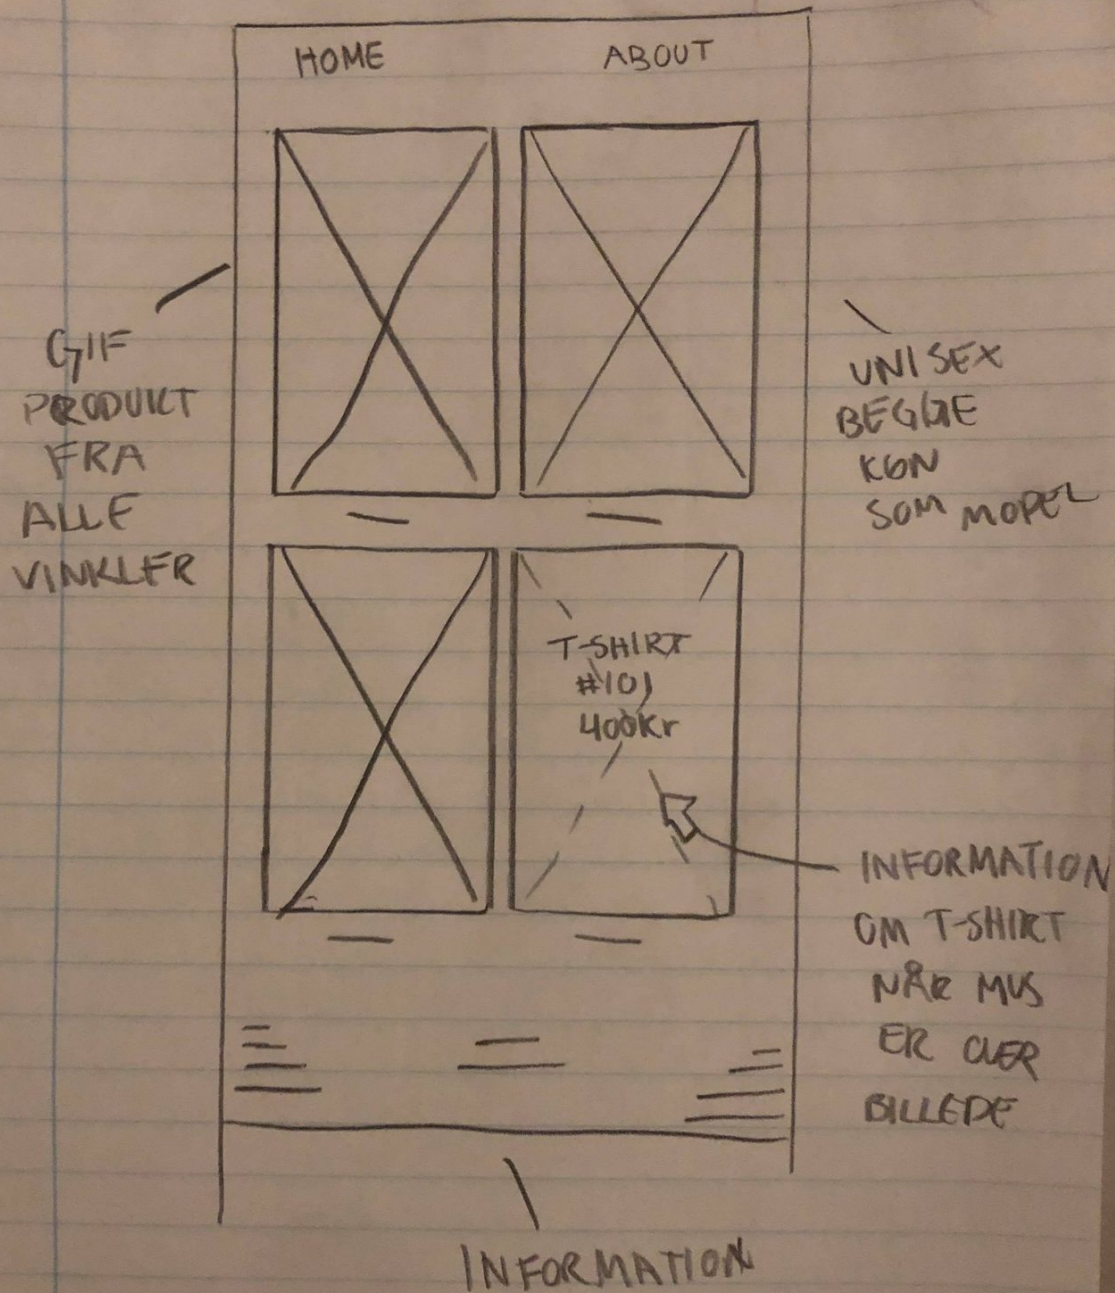 HOME ABOUT
GIF
PRODUKT
FRA
ALLE
VINKLER
UNISEX
BEGGE
KØN
SOM MODEL
T-SHIRT
#101
400Kr
INFORMATION
OM T-SHIRT
NÅR MUS
ER OVER
BILLEDE
INFORMATION